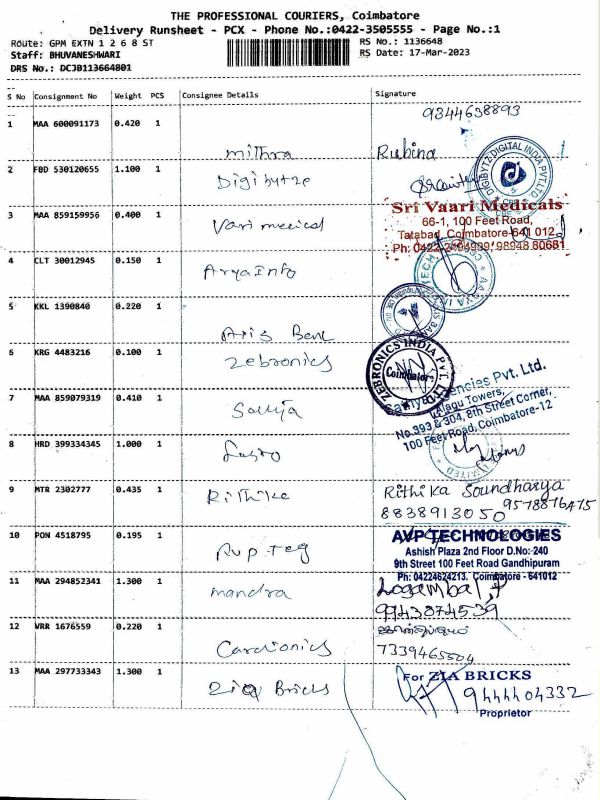 THE PROFESSIONAL COURIERS, Coimbatore
Delivery Runsheet - PCX - Phone No.:0422-3505555 - Page No.:1
Route: GPM EXTN 1 2 6 8 ST
RS No.: 1136648
Staff: BHUVANESHWARI
RS Date: 17-Mar-2023
DRS No.: DCJB113664801
S No Consignment No Weight PCS Consignee Details Signature
9344638893
1 MAA 600091173 0.420 1
mithra Rubina
2 FBD 530120655 1.100 1
Digibytze
DIGIBYTZ DIGITAL INDIA PVT LTD.
3 MAA 859159956 0.400 1
Vari medical
Sri Vaari Medicals
66-1, 100 Feet Road,
Tatabad, Coimbatore-641 012
Ph: 0422 2494999, 98948 80681
4 CLT 30012945 0.150 1
Arya Info
5 KKL 1390840 0.220 1
Axis Bank
6 KRG 4483216 0.100 1
Zebronics
ZEBRONICS INDIA PVT. LTD
Coimbatore
7 MAA 859079319 0.410 1
Agencies Pvt. Ltd.
Alagu Towers,
No.393 & 304, 8th Street Corner,
100 Feet Road, Coimbatore-12
8 HRD 399334345 1.000 1
9 MTR 2302777 0.435 1
Rithika
Rithika Soundharya
8838913050 9578876475
10 PON 4518795 0.195 1
Avp teg
AVP TECHNOLOGIES
Ashish Plaza 2nd Floor D.No: 240
9th Street 100 Feet Road Gandhipuram
Ph: 04224624213. Coimbatore - 641012
11 MAA 294852341 1.300 1
mandra
Logambal.P
9943874539
12 VRR 1676559 0.220 1
Cardionics
7339465504
13 MAA 297733343 1.300 1
Zia Bricks
For ZIA BRICKS
9444404332
Proprietor